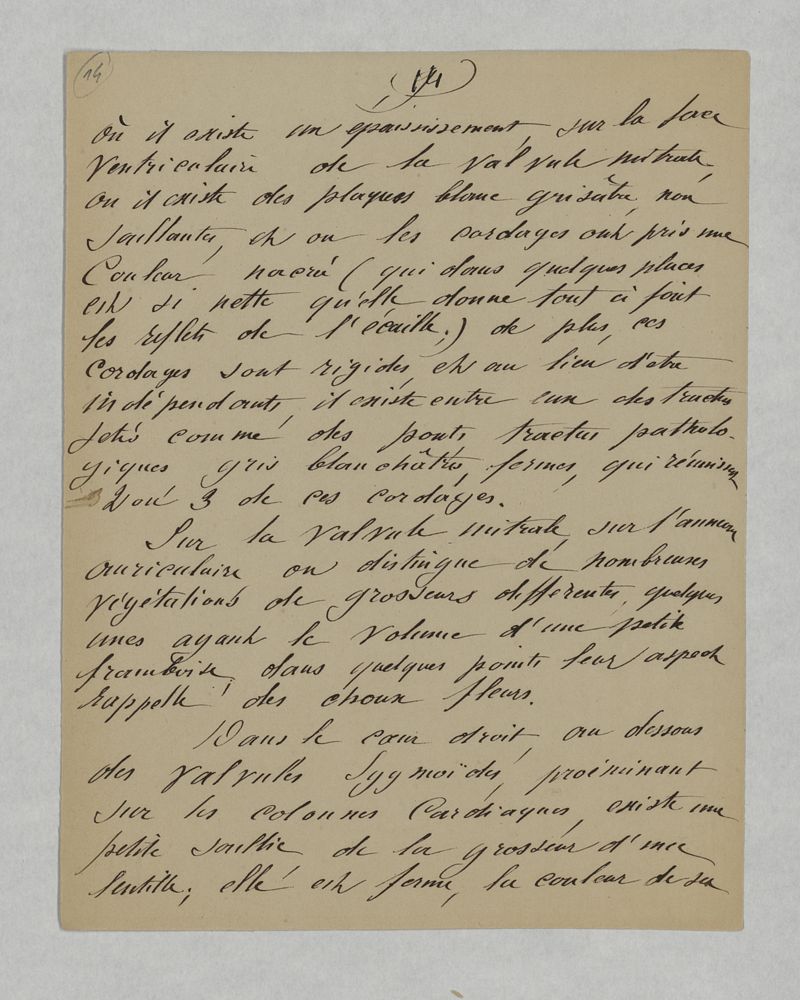 14
14
où il existe un épaississement, sur la face
Ventriculaire de la valvule mitrale,
ou il existe des plaques blanc grisâtre, non
Saillantes, et ou les cordages ont pris une
Couleur nacrée (qui dans quelques places
est si nette qu'elle donne tout à fait
les reflets de l'écaille;) de plus, ces
Cordages sont rigides, et au lieu d'etre
indépendants, il existe entre eux des tractus
Jetés comme des ponts tractus patholo-
giques gris blanchâtres, fermes, qui réunissent
2 ou 3 de ces cordages.
Sur la valvule mitrale, sur l'anneau
auriculaire on distingue de nombreuses
végétations de grosseurs differentes, quelques
unes ayant le volume d'une petite
framboise, dans quelques points leur aspect
rappelle des choux fleurs.
Dans le cœur droit, au dessous
des valvules Sygmoïdes, proéminant
sur les colonnes Cardiaques, existe une
petite saillie de la grosseur d'une
lentille; elle est ferme, la couleur de sa